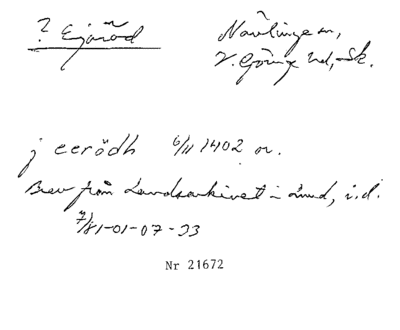 ? Ejäröd
Nävlinge sn,
V. Göinge hd, Sk.
j eerödh 6/11 1402 or.
Brev från Landsarkivet i Lund, i.d.
7/81-01-07-33
Nr 21672